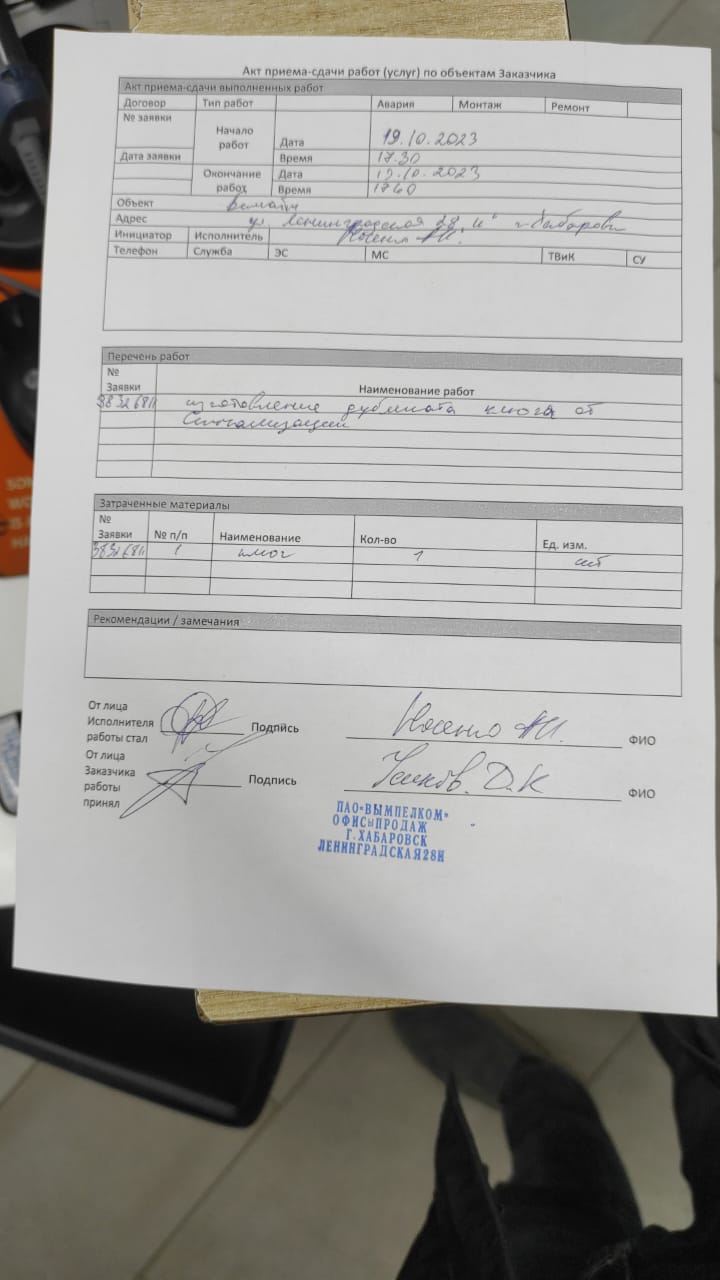 Акт приема-сдачи работ (услуг) по объектам Заказчика
Акт приема-сдачи выполненных работ
Договор Тип работ Авария Монтаж Ремонт
№ заявки
Начало работ Дата 19.10.2023
Дата заявки Время 17.30
Окончание работ Дата 19.10.2023
Время 1740
Объект Билайн
Адрес ул Ленинградская 28 "И" г. Хабаровск
Инициатор Исполнитель Носенко А.И.
Телефон Служба ЭС МС ТВиК СУ
Перечень работ
№ Заявки Наименование работ
3832681 изготовление дубликата ключа от
Сигнализации
Затраченные материалы
№ Заявки № п/п Наименование Кол-во Ед. изм.
3832681 1 ключ 1 шт
Рекомендации / замечания
От лица
Исполнителя
работы стал Подпись Носенко А.И. ФИО
От лица
Заказчика
работы Подпись Д.К ФИО
принял
ПАО«ВЫМПЕЛКОМ»
ОФИС ПРОДАЖ
Г.ХАБАРОВСК
ЛЕНИНГРАДСКАЯ28И